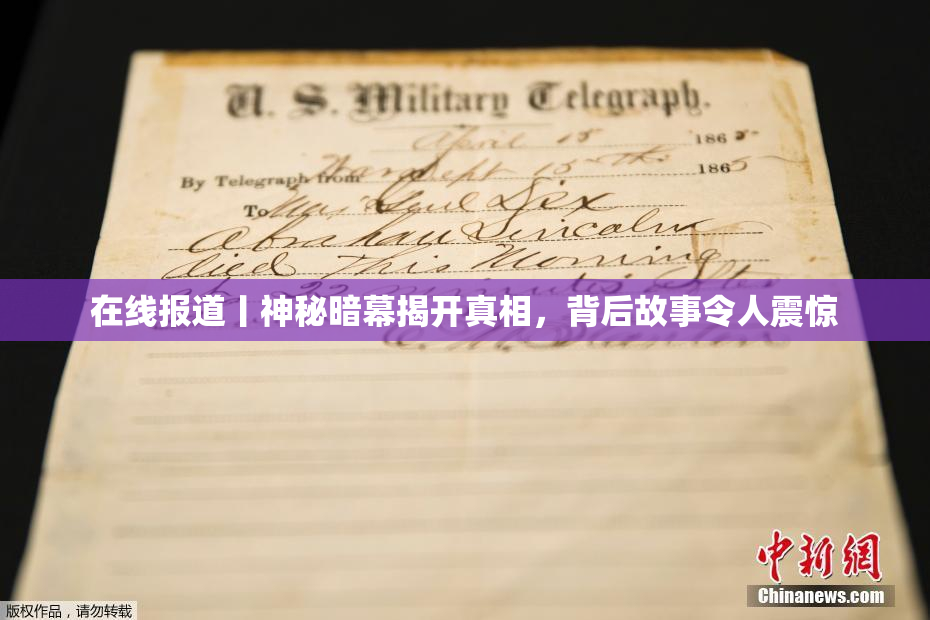 U. S. Military Telegraph.
April 15 1865
By Telegraph from War Dept 15th 1865
To Maj Genl Dix
Abraham Lincoln
died This Morning
22 minutes after
在线报道丨神秘暗幕揭开真相，背后故事令人震惊
E. M. Stanton
中新网
Chinanews.com
版权作品，请勿转载